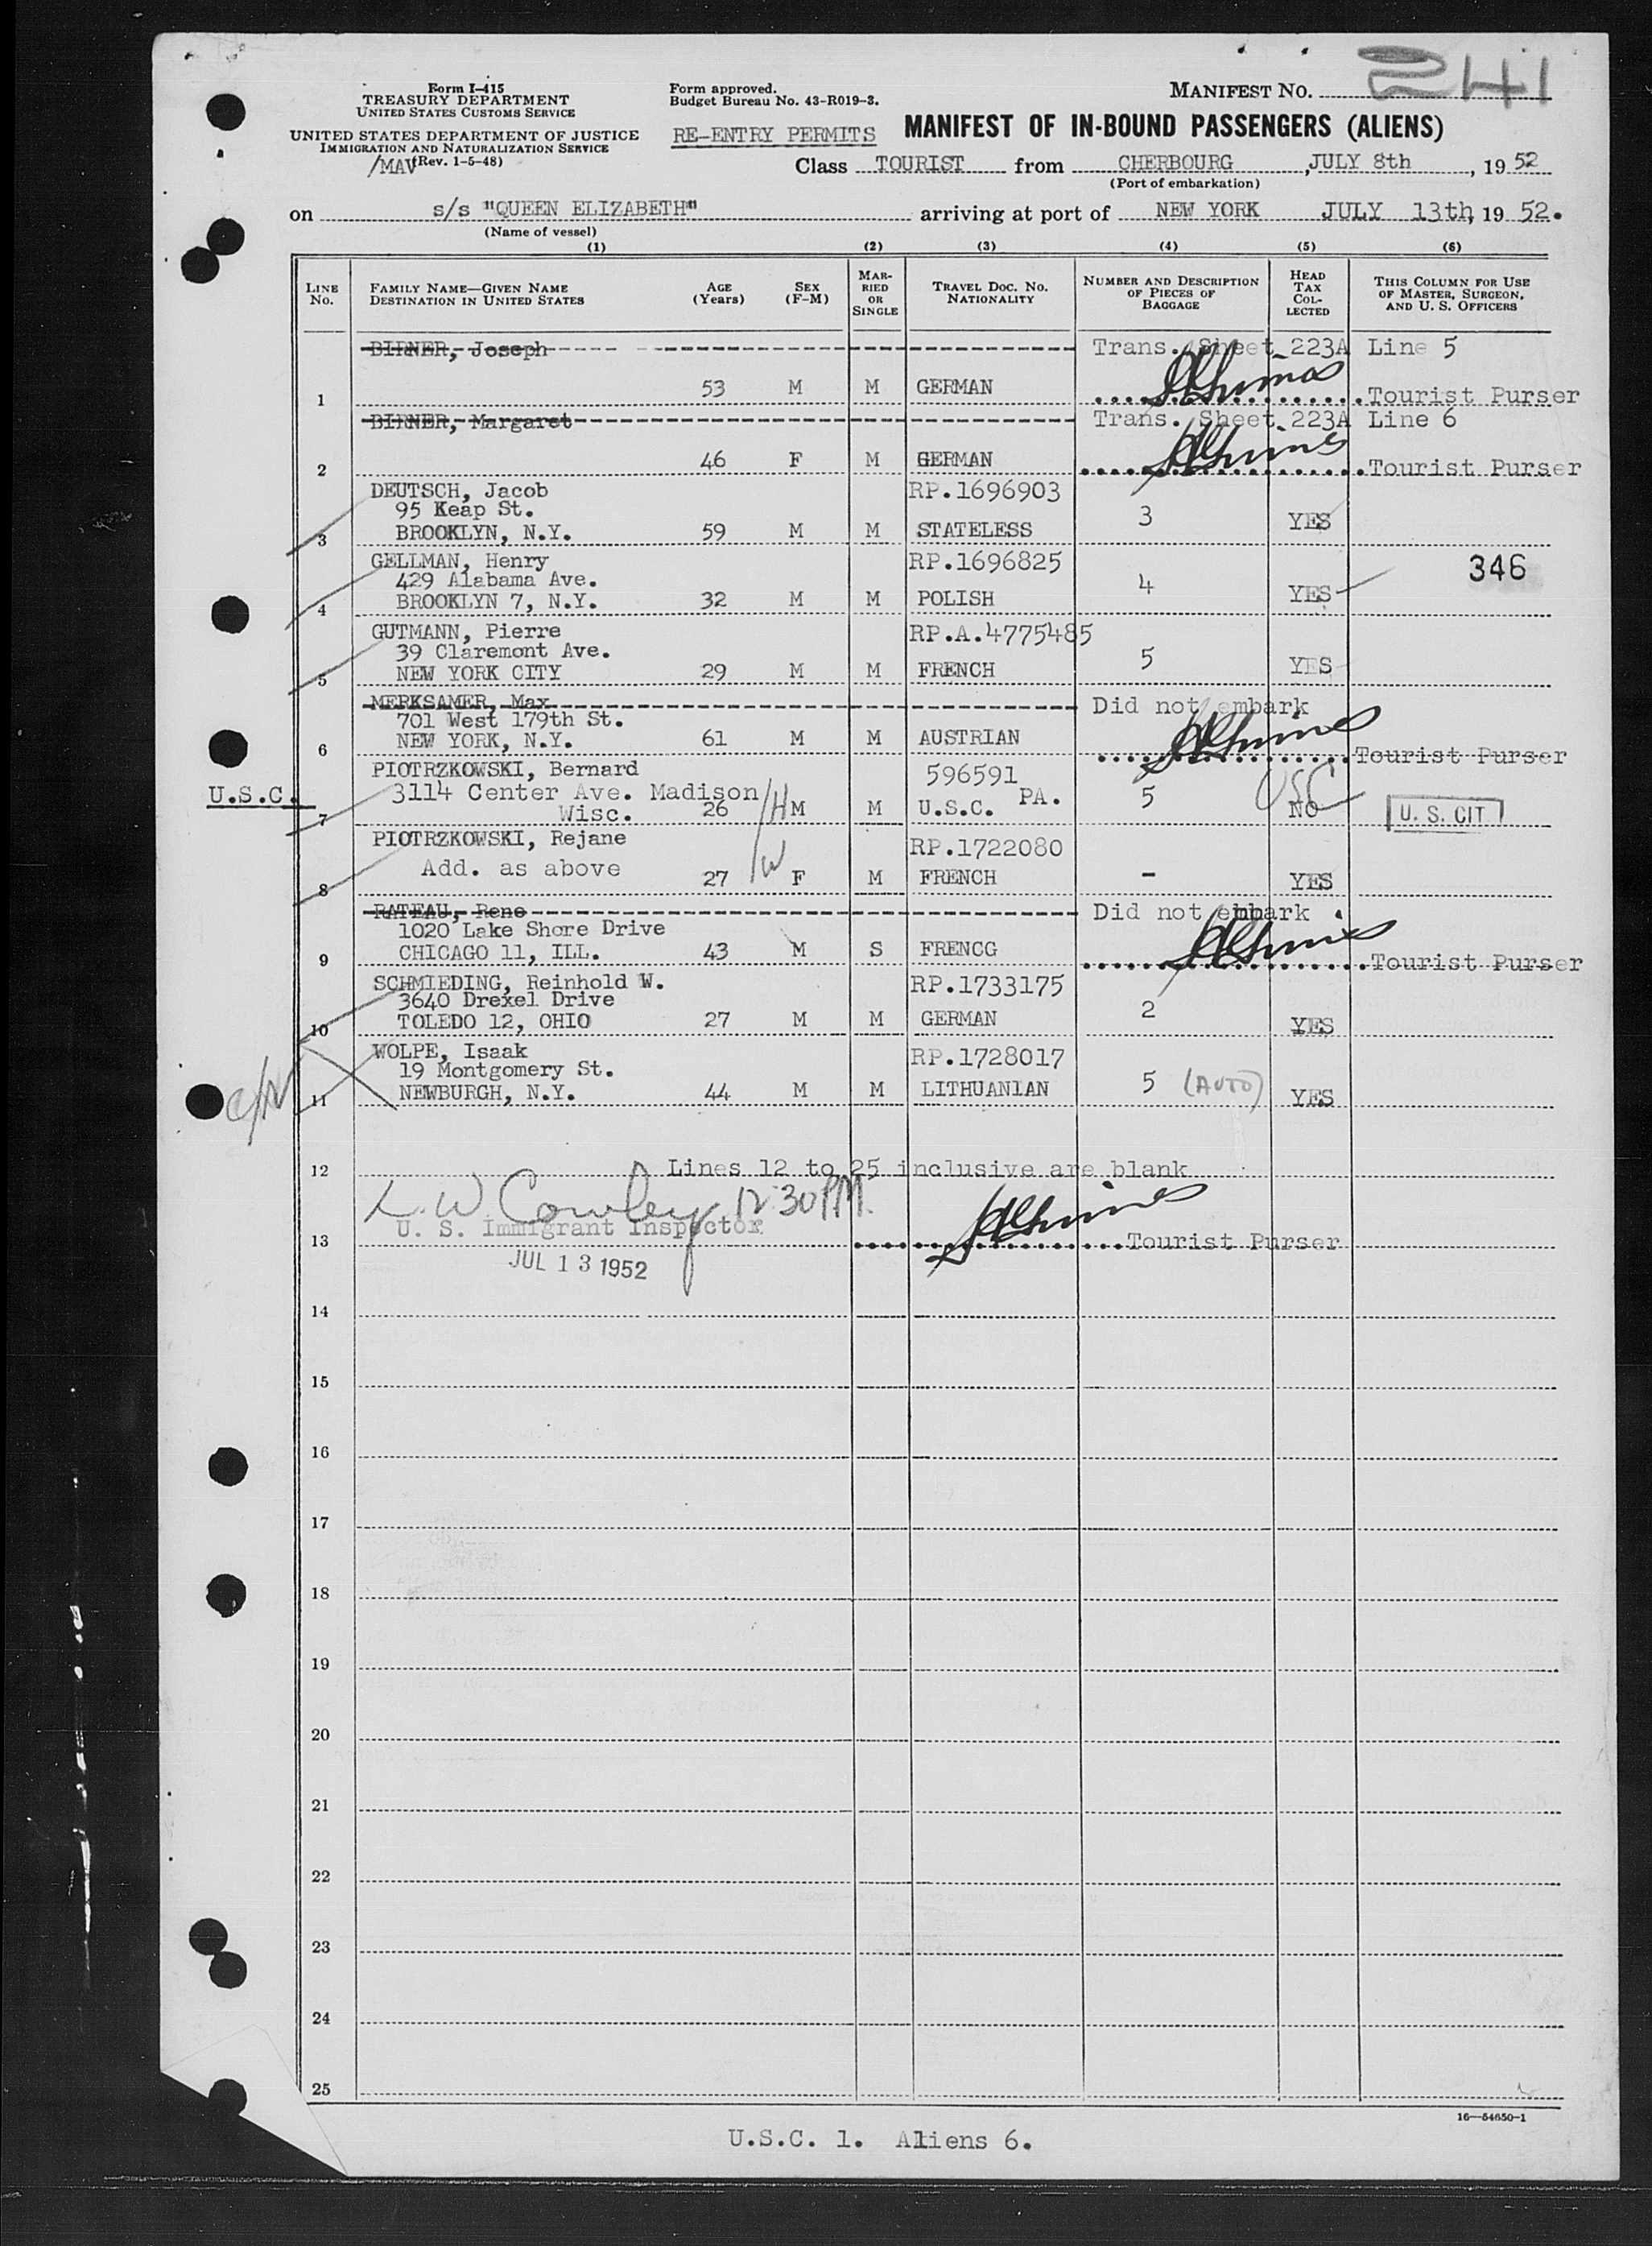 Form I-415
TREASURY DEPARTMENT
UNITED STATES CUSTOMS SERVICE
UNITED STATES DEPARTMENT OF JUSTICE
IMMIGRATION AND NATURALIZATION SERVICE
/MAV (Rev. 1-5-48)
Form approved.
Budget Bureau No. 43-R019-3.
RE-ENTRY PERMITS
MANIFEST NO. 241
MANIFEST OF IN-BOUND PASSENGERS (ALIENS)
Class TOURIST from CHERBOURG, JULY 8th, 19 52
(Port of embarkation)
on s/s "QUEEN ELIZABETH" arriving at port of NEW YORK JULY 13th, 19 52.
(Name of vessel)
(1) (2) (3) (4) (5) (6)
LINE NO. FAMILY NAME—GIVEN NAME DESTINATION IN UNITED STATES AGE (Years) SEX (F-M) MARRIED OR SINGLE TRAVEL DOC. NO. NATIONALITY NUMBER AND DESCRIPTION OF PIECES OF BAGGAGE HEAD TAX COLLECTED THIS COLUMN FOR USE OF MASTER, SURGEON, AND U. S. OFFICERS
BIRNER, Joseph Trans. Sheet 223A Line 5
1 53 M M GERMAN Tourist Purser
BIRNER, Margaret Trans. Sheet 223A Line 6
2 46 F M GERMAN Tourist Purser
DEUTSCH, Jacob RP.1696903
95 Keap St.
3 BROOKLYN, N.Y. 59 M M STATELESS 3 YES
GELLMAN, Henry RP.1696825 346
429 Alabama Ave.
4 BROOKLYN 7, N.Y. 32 M M POLISH 4 YES
GUTMANN, Pierre RP.A.4775485
39 Claremont Ave.
5 NEW YORK CITY 29 M M FRENCH 5 YES
MERKSAMER, Max Did not embark
701 West 179th St.
6 NEW YORK, N.Y. 61 M M AUSTRIAN Tourist Purser
PIOTRZKOWSKI, Bernard 596591
U.S.C. 3114 Center Ave. Madison PA. USC
7 Wisc. 26 /H M M U.S.C. 5 NO U. S. CIT
PIOTRZKOWSKI, Rejane RP.1722080
Add. as above
8 27 /W F M FRENCH - YES
RATEAU, Rene Did not embark
1020 Lake Shore Drive
9 CHICAGO 11, ILL. 43 M S FRENCG Tourist Purser
SCHMIEDING, Reinhold W. RP.1733175
3640 Drexel Drive
10 TOLEDO 12, OHIO 27 M M GERMAN 2 YES
WOLPE, Isaak RP.1728017
19 Montgomery St.
11 NEWBURGH, N.Y. 44 M M LITHUANIAN 5 (AUTO) YES
12 Lines 12 to 25 inclusive are blank
L. W. Cowley 12 30 PM.
U. S. Immigrant Inspector
13 Tourist Purser
JUL 13 1952
14
15
16
17
18
19
20
21
22
23
24
25
16—54650-1
U.S.C. 1. Aliens 6.